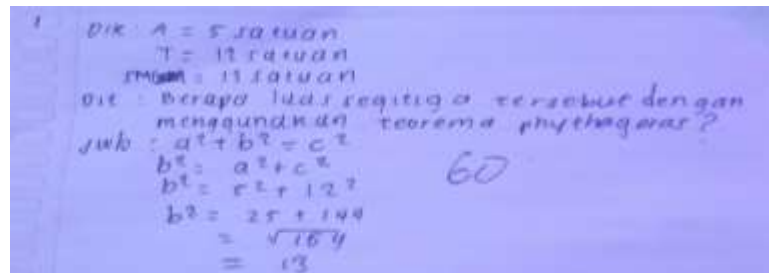 1 Dik : A = 5 satuan
T = 12 satuan
= 13 satuan
Dit : Berapa luas segitiga tersebut dengan
menggunakan teorema phythagoras?
Jwb : a² + b² = c²
b² = a² + c²
b² = 5² + 12²
b² = 25 + 144
= √169
= 13
60